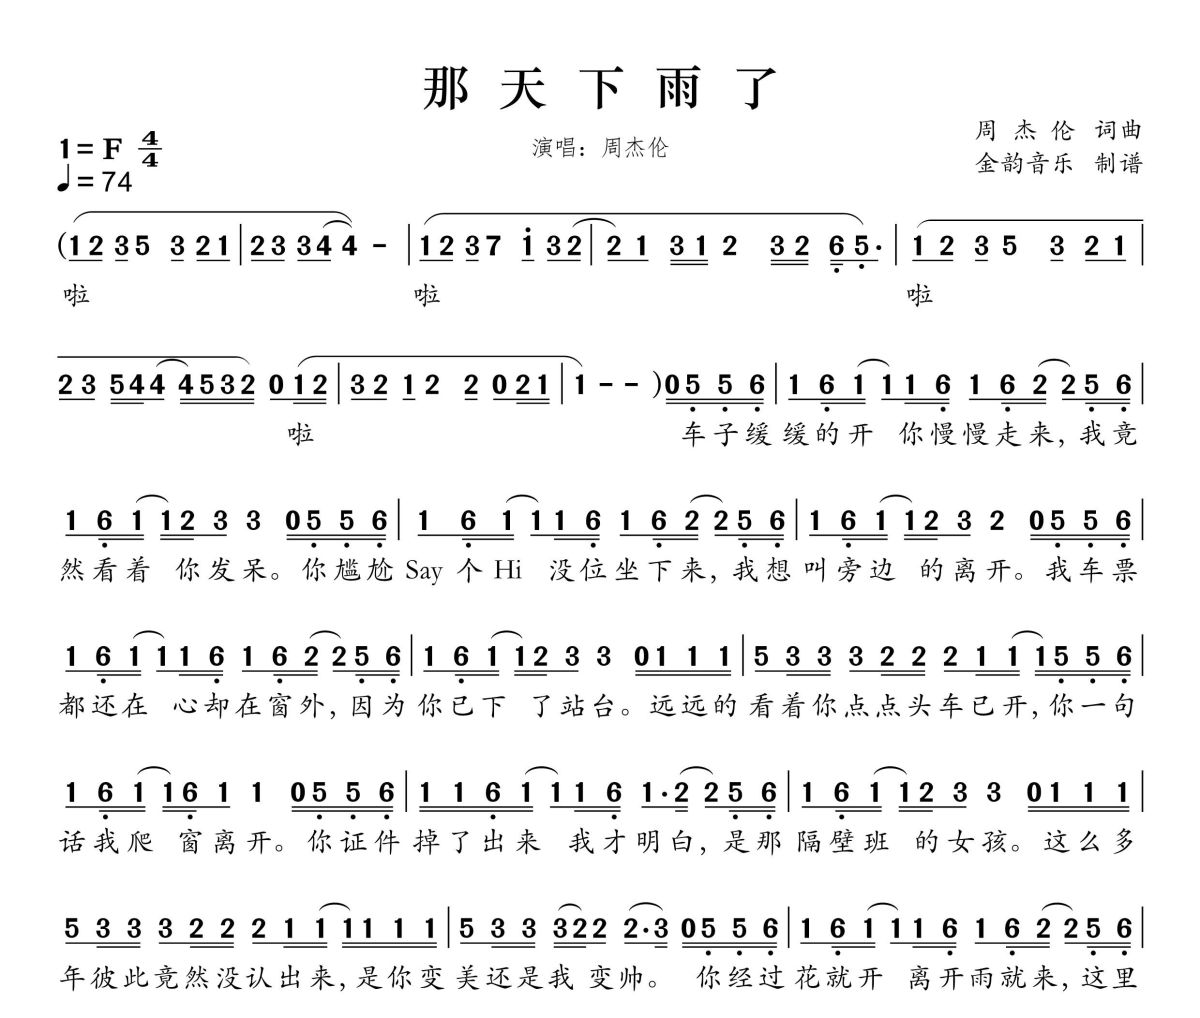 那天下雨了
周杰伦 词曲
1=F 4/4
演唱：周杰伦
金韵音乐 制谱
♩=74
(12 35 3 21|23 34 4 -|12 37 i 32|21 312 32 65·|12 35 3 21|
啦 啦 啦
23 544 4532 012|32 12 2 021|1 - - )05 5 6|1 6 1 11 6 1 6 2 25 6|
啦 车子缓缓的开 你慢慢走来，我竟
1 6 1 12 3 3 05 5 6|1 6 1 11 6 1 6 2 25 6|1 6 1 12 3 2 05 5 6|
然看着 你发呆。你尴尬 Say 个 Hi 没位坐下来，我想叫旁边 的离开。我车票
1 6 1 11 6 1 6 2 25 6|1 6 1 12 3 3 01 1 1|5 3 3 3 2 2 2 1 1 15 5 6|
都还在 心却在窗外，因为你已下 了站台。远远的看着你点点头车已开，你一句
1 6 1 16 1 1 05 5 6|1 1 6 1 11 6 1·2 25 6|1 6 1 12 3 3 01 1 1|
话我爬 窗离开。你证件掉了出来 我才明白，是那隔壁班 的女孩。这么多
5 3 3 3 2 2 2 1 1 11 1 1|5 3 3 322 2·3 05 5 6|1 6 1 11 6 1 6 2 25 6|
年彼此竟然没认出来，是你变美还是我 变帅。 你经过花就开 离开雨就来，这里